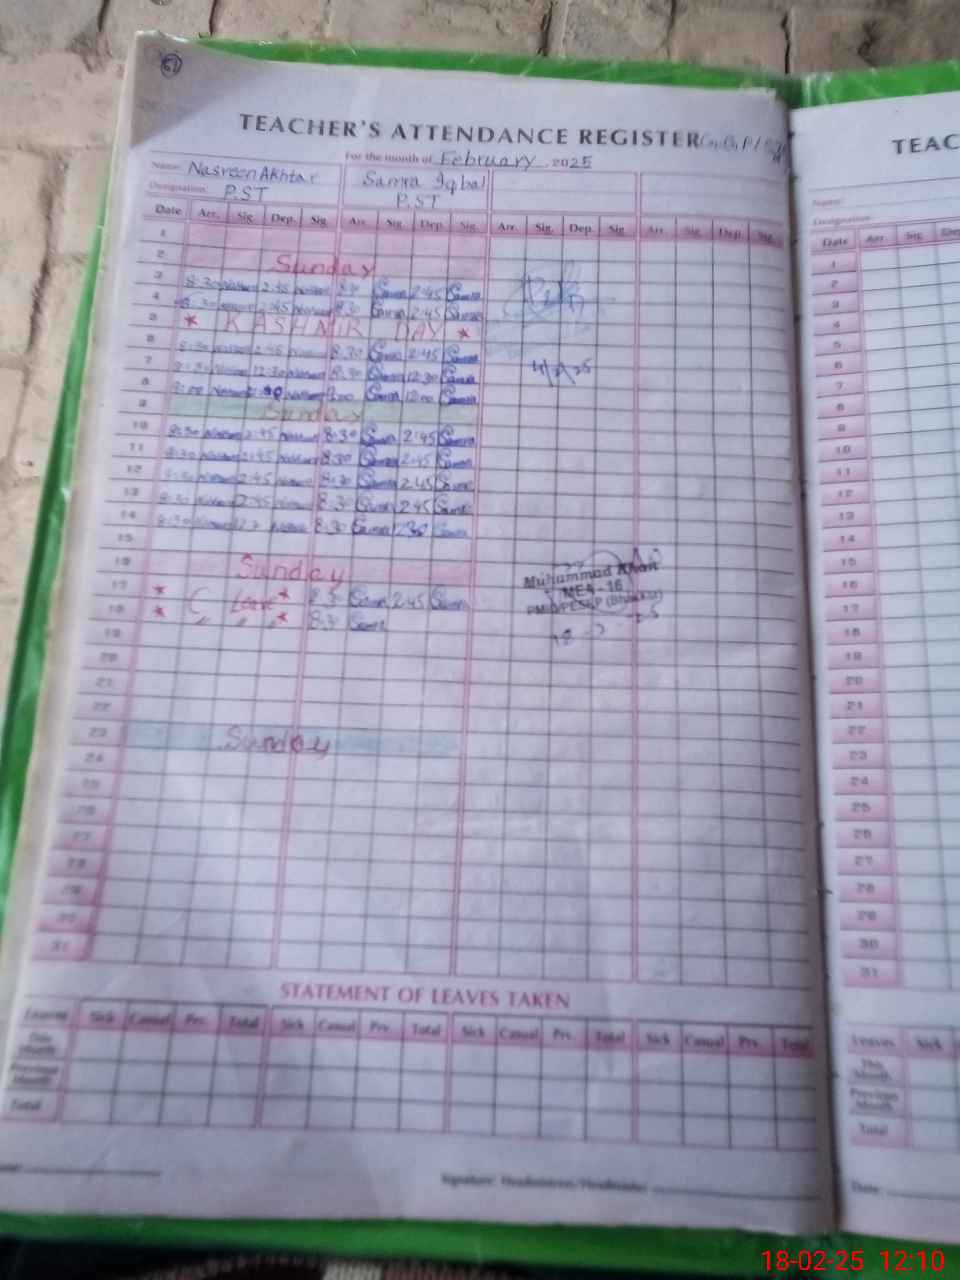 61
TEACHER'S ATTENDANCE REGISTER
For the month of February, 2025
Name: Nasreen Akhtar Samra Iqbal
Designation: P.ST P.ST
Date Arr. Sig. Dep. Sig. Arr. Sig. Dep. Sig. Arr. Sig. Dep. Sig. Arr. Sig. Dep. Sig.
1
2 Sunday
3 8:30 2:45 8:30 Samra 2:45 Samra
4 8:30 2:45 8:30 Samra 2:45 Samra
5 * KASHMIR DAY *
6 8:30 2:45 8:30 Samra 2:45 Samra
7 8:30 12:30 8:30 Samra 12:30 Samra
8 9:00 Samra 12:00 Samra
9 Sunday
10 8:30 2:45 8:30 Samra 2:45 Samra
11 8:30 2:45 8:30 Samra 2:45 Samra
12 8:30 2:45 8:30 Samra 2:45 Samra
13 8:30 2:45 8:30 Samra 2:45 Samra
14 8:30 8:30 Samra Samra
15
16 Sunday
17 * C Leave * 8:30 Samra 2:45 Samra
18 * " " " * 8:30 Samra
Muhammad Khan
MEA - 16
19
20
21
22
23 Sunday
24
25
26
27
28
29
30
31
STATEMENT OF LEAVES TAKEN
Leaves Sick Casual Prv. Total Sick Casual Prv. Total Sick Casual Prv. Total Sick Casual Prv. Total
This Month
Previous Month
Total
Signature: Headmistress/Headmaster
TEAC
Name:
Designation:
Date Arr. Sig. Dep
1
2
3
4
5
6
7
8
9
10
11
12
13
14
15
16
17
18
19
20
21
22
23
24
25
26
27
28
29
30
31
Leaves Sick
This Month
Previous Month
Total
Date:
18-02-25 12:10